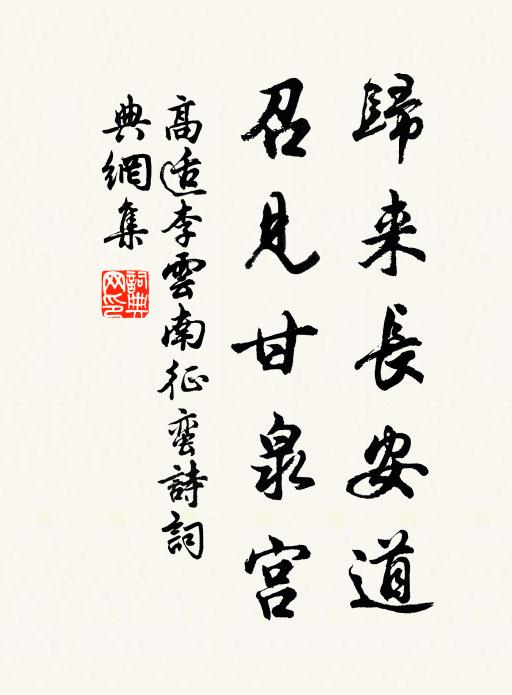 歸来長安道
召見甘泉宫
高适李雲南征蛮詩詞
典網集
詞典
网印